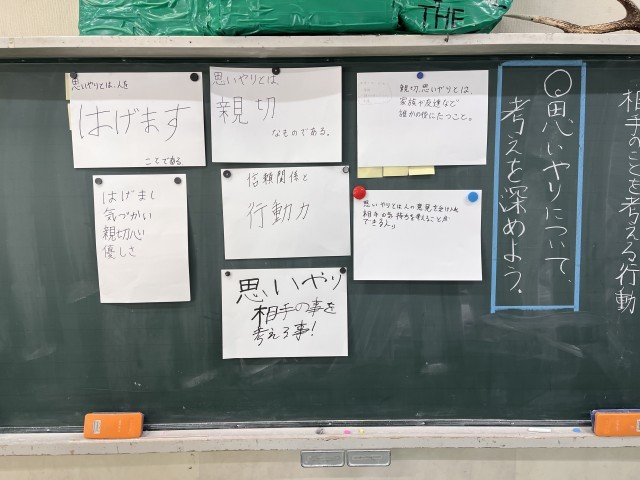 THE
相手のことを考える行動
◎思いやりについて、
考えを深めよう。
思いやりとは、人を
はげます
ことである。
思いやりとは、
親切
なものである。
親切、思いやりとは、
家族や友達など
誰かの役にたつこと。
はげまし
気づかい
親切心
優しさ
信頼関係と
行動力
思いやりとは人の意見を受け入れ
相手の気持ちを考えること
できる人。
思いやり
相手の事を
考える事!